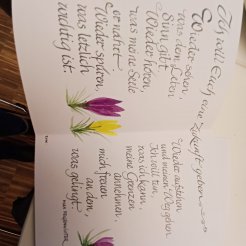 Ich will Euch eine Zukunft geben
Wieder sehen,
was dem Leben
Sinn gibt
Wieder hören,
was meine Seele
ernährt.
Wieder spüren,
was letztlich
wichtig ist.
Wieder aufstehen
und meinen Weg gehen.
Ich will tun,
was ich kann,
meine Grenzen
annehmen,
mich freuen
an dem,
was gelingt.